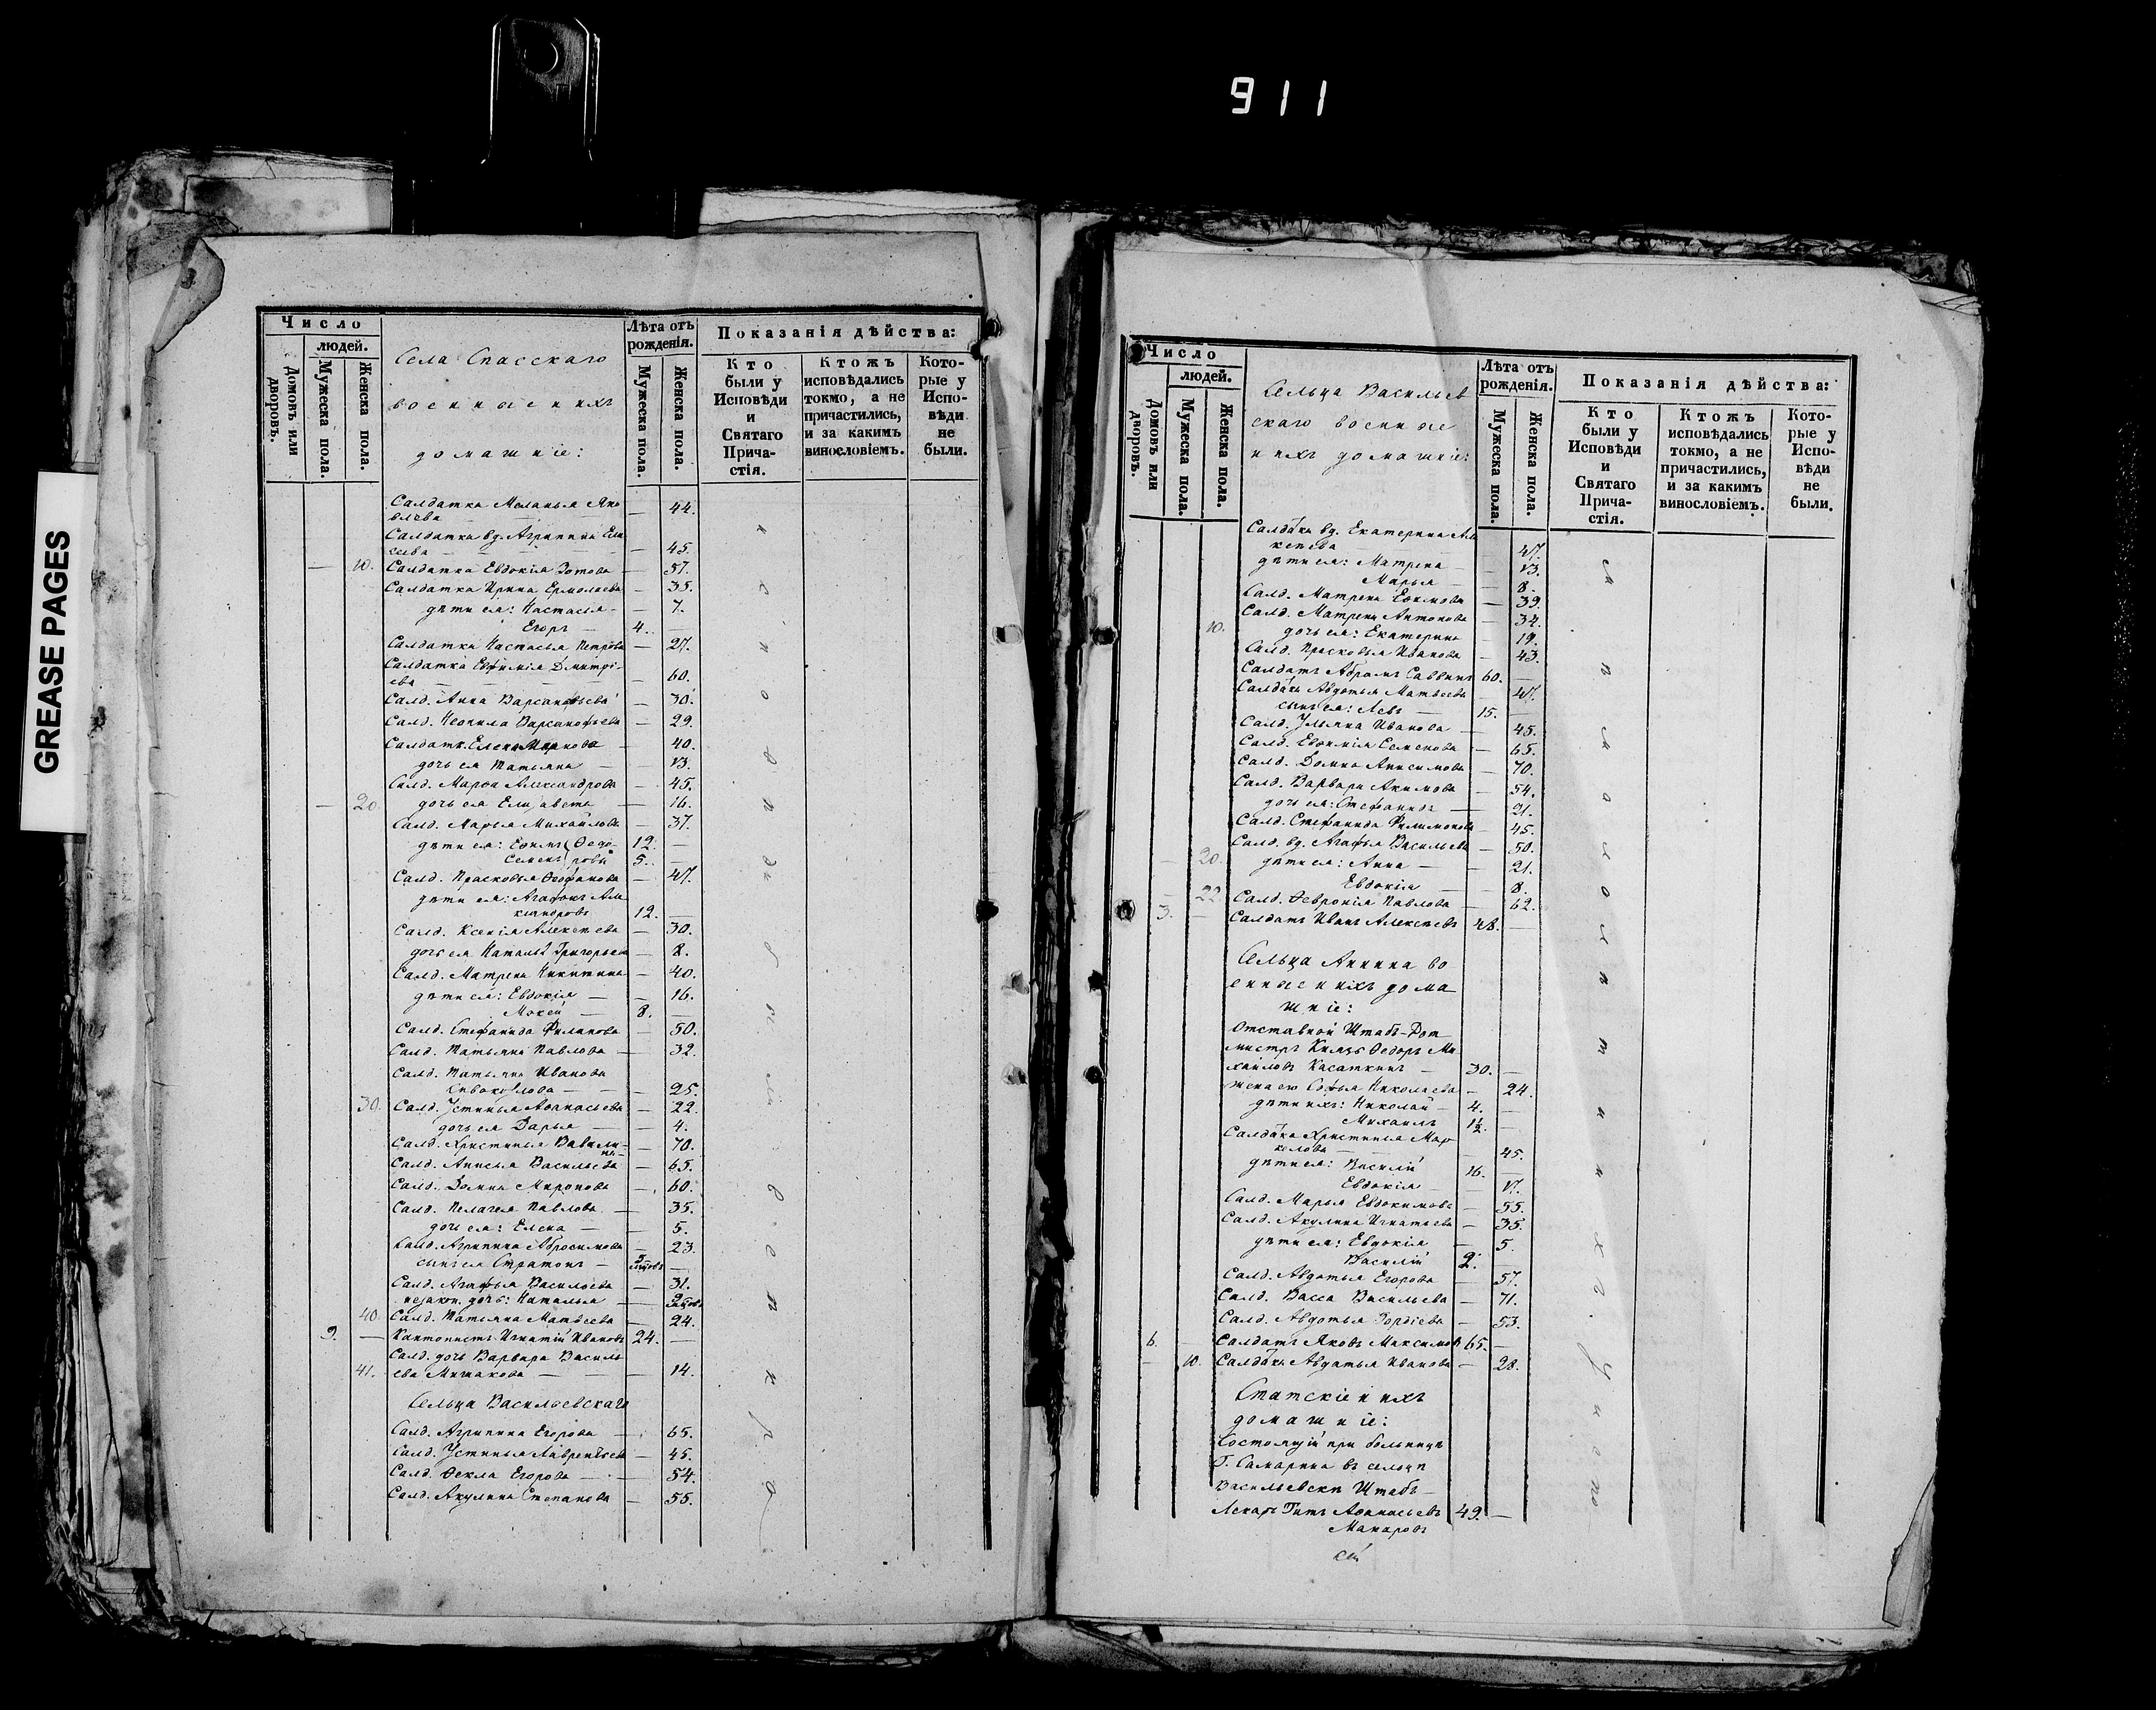 911
GREASE PAGES
Число
людей.
Домовъ или дворовъ.
Мужеска пола.
Женска пола.
Села Спасскаго
военные и ихъ
домашніе:
Лѣта отъ рожденія.
Мужеска пола.
Женска пола.
Показанія дѣйства:
Кто были у Исповѣди и Святаго Прича-стія.
Ктожъ исповѣдались токмо, а не причастились, и за какимъ винословіемъ.
Кото-рые у Испо-вѣди не были.
Салдатка Меланья Яко
влева — 44.
Салдатка вд. Агрипина Ели
сеева — 45.
— 10. Салдатка Евдокія Зотова — 57.
Салдатка Ирина Ермолаева — 35.
дѣти ея: Настасья — 7.
Егоръ — 4. —
Салдатка Настасья Петрова — 27.
Салдатка Евфимія Дмитрі-
ева — 60.
Салд. Анна Варсанофьева — 30.
Салд. Неонила Варсанофьева — 29.
Салдатк. Елена — 40.
дочь ея Татьяна — 13.
Салд. Марѳа Александрова — 45.
— 20. дочь ея Елизавета — 16.
Салд. Марья Михайлова — 37.
дѣти ея: Ефимъ Ѳедо- 12. —
Семенъ ровы 5. —
Салд. Прасковья Ѳеофанова — 47.
дѣти ея: Агафонъ Але
ксандровъ 12. —
Салд. Ксенія Алексѣева — 30.
дочь ея Наталья Григорьева — 8.
Салд. Матрена Никитина — 40.
дѣти ея: Евдокія — 16.
Мокей — 8. —
Салд. Стефанида Филипова — 50.
Салд. Татьяна Павлова — 32.
Салд. Татьяна Иванова
— 25.
30. Салд. Устинья Аѳанасьева — 22.
дочь ея Дарья — 4.
Салд. Христинья Вавили-
на — 70.
Салд. Анисья Васильева — 65.
Салд. Домна Миронова — 60.
Салд. Пелагея Павлова — 35.
дочь ея: Елена — 5.
Салд. Агрипина Абросимова — 23.
сынъ ея Стратонъ —
Салд. Агафья Васильева — 31.
незакон. дочь: Наталья —
40. Салд. Татьяна Матвеева — 24.
9. — Кантонистъ Игнатій Ивановъ 24. —
Салд. дочь Варвара Василь
41. ева Мишакова — 14.
Сельца Васильевскаго
Салд. Агрипина Егорова — 65.
Салд. Устинья Лаврентьева — 45.
Салд. Ѳекла Егорова — 54.
Салд. Акулина Степанова — 55.
Число
людей.
Домовъ или дворовъ.
Мужеска пола.
Женска пола.
Сельца Васильев
скаго военные
и ихъ домашніе:
Лѣта отъ рожденія.
Мужеска пола.
Женска пола.
Показанія дѣйства:
Кто были у Исповѣди и Святаго Прича-стія.
Ктожъ исповѣдались токмо, а не причастились, и за какимъ винословіемъ.
Кото-рые у Испо-вѣди не были.
Салдатка вд. Екатерина Але
ксеева — 47.
дѣти ея: Матрена — 13.
Марья — 8.
Салд. Матрена Ефимова — 39.
Салд. Матрена Антонова — 34.
10. дочь ея: Екатерина — 12.
Салд. Прасковья Иванова — 43.
Салдатъ Абрамъ Саввинъ 60. —
Салдатка Авдотья Матвеева — 47.
сынъ ея: Левъ — 15. —
Салд. Ульяна Иванова — 45.
Салд. Евфимія Семенова — 65.
Салд. Домна Анисимова — 70.
Салд. Варвара Акимова — 54.
дочь ея: Стефанида — 21.
Салд. Стефанида Филимонова — 45.
Салд. вд. Агафья Васильева — 50.
— 20. дѣти ея: Анна — 21.
Евдокія — 8.
22. Салд. Ѳевронія Павлова — 62.
3. — Салдатъ Иванъ Алексѣевъ 48. —
Сельца Аннина во
енные и ихъ дома
шніе:
Отставной Штабъ-Рот
мистръ Князь Ѳедоръ Ми
хайловъ Касаткинъ — 30. —
жена его Софья Николаева — 24.
дѣти ихъ: Николай — 4. —
Михаилъ 1½. —
Салдатка Христинья Мар
келова — 45.
дѣти ея: Василій 16. —
Евдокія — 17.
Салд. Марья Евдокимова — 55.
Салд. Акулина Игнатьева — 35.
дѣти ея: Евдокія — 5.
Василій 2.
Салд. Авдотья Егорова — 57.
Салд. Васса Васильева — 71.
Салд. Авдотья Гордіева — 53.
6. — Салдатъ Яковъ Максимовъ 65. —
— 10. Салдатка Авдотья Иванова — 28.
Статскіе и ихъ
домашніе:
Состоящій при больницѣ
Г. Самарина въ сельцѣ
Васильевски Штабъ-
Лекарь Титъ Аѳанасьевъ 49. —
Макаров
скій